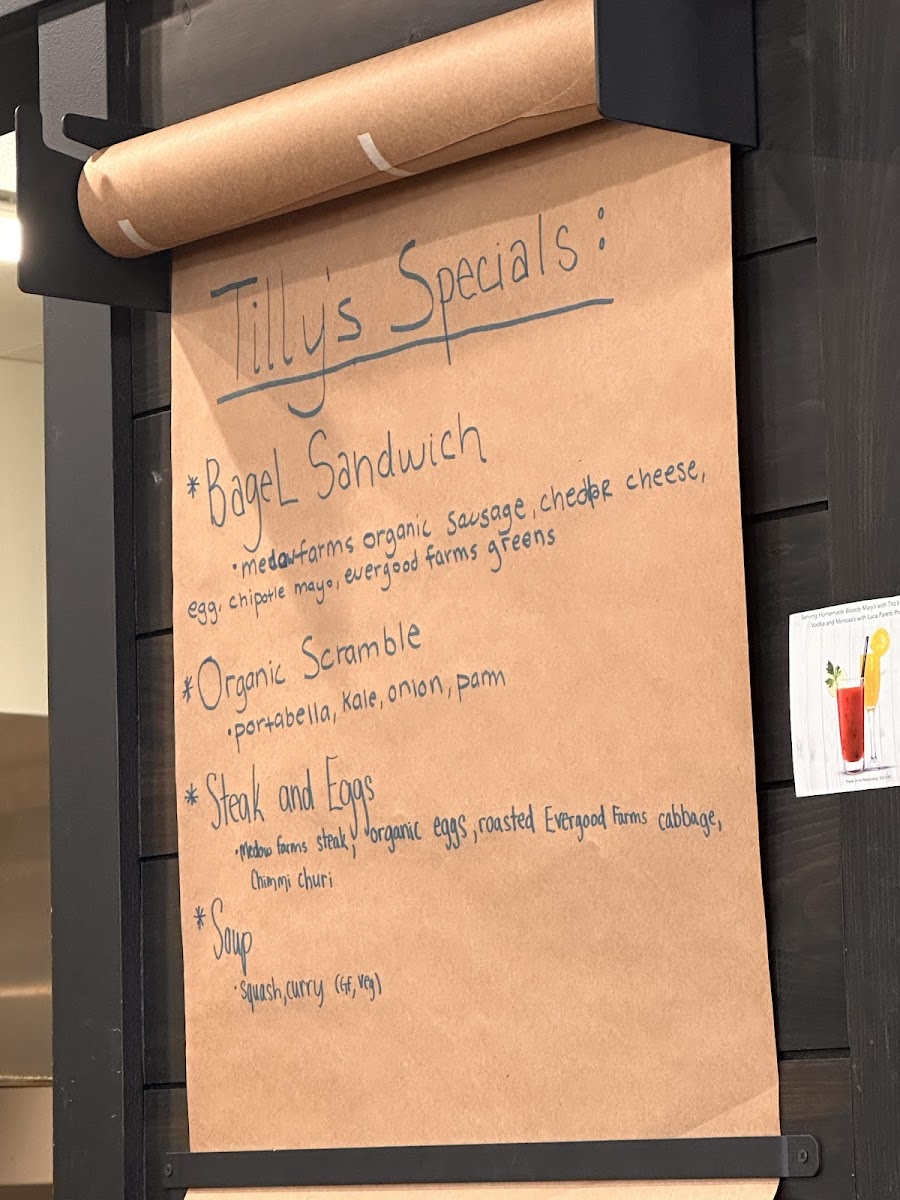 Tilly's Specials:
* Bagel Sandwich
• medow farms organic sausage, chedar cheese,
egg, chipotle mayo, evergood farms greens
* Organic Scramble
• portabella, kale, onion, parm
* Steak and Eggs
• Medow farms steak, organic eggs, roasted Evergood Farms cabbage,
Chimmi churi
* Soup
• squash, curry (GF, Veg)
Serving Homemade Bloody Mary's with Tito's
Vodka and Mimosa's with Luca Paretti